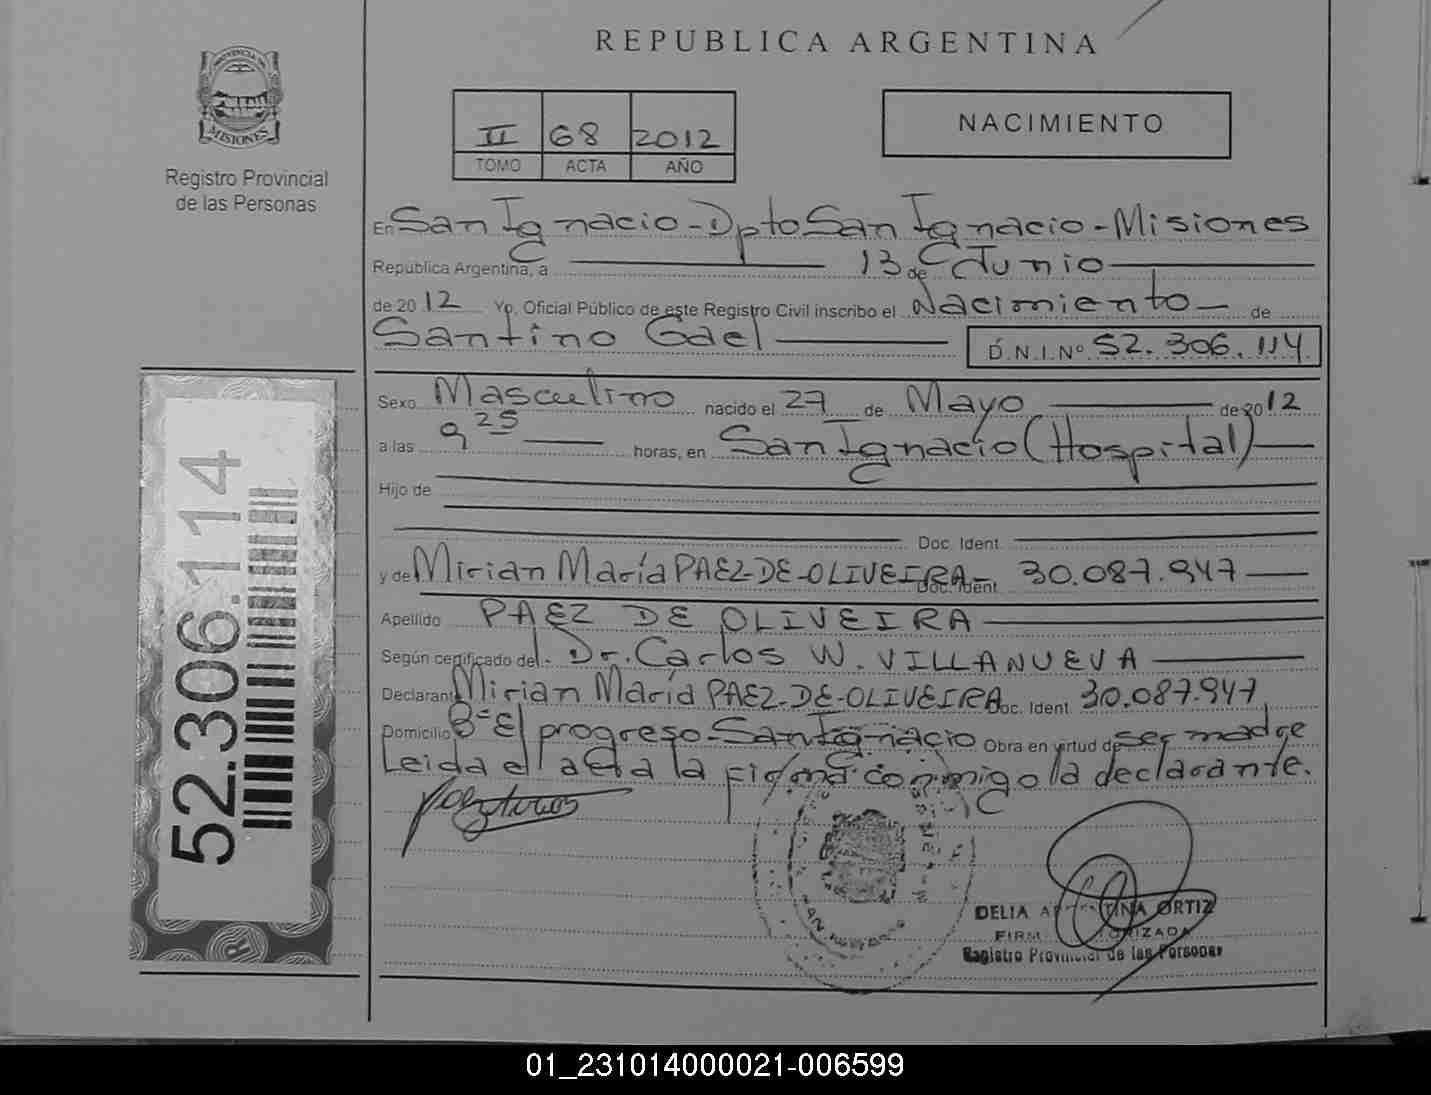 REPUBLICA ARGENTINA
PROVINCIA DE
MISIONES
Registro Provincial
de las Personas
II 68 2012
TOMO ACTA AÑO
NACIMIENTO
En San Ignacio - Dpto San Ignacio - Misiones
República Argentina, a 13 de Junio
de 2012 Yo, Oficial Público de este Registro Civil inscribo el Nacimiento de
Santino Gael D.N.I.Nº 52.306.114
Sexo Masculino nacido el 27 de Mayo de 2012
a las 9 25 horas, en San Ignacio (Hospital)
Hijo de
Doc. Ident.
y de Mirian María PAEZ-DE-OLIVEIRA Doc. Ident. 30.087.947
Apellido PAEZ DE OLIVEIRA
Según certificado del Dr. Carlos W. VILLANUEVA
Declarante Mirian María PAEZ-DE-OLIVEIRA Doc. Ident. 30.087.947
Domicilio Bº El progreso - San Ignacio Obra en virtud de ser madre
Leida el acta la firma conmigo la declarante.
DELIA ORTIZ
Registro Provincial de las Personas
52.306.114
01_231014000021-006599